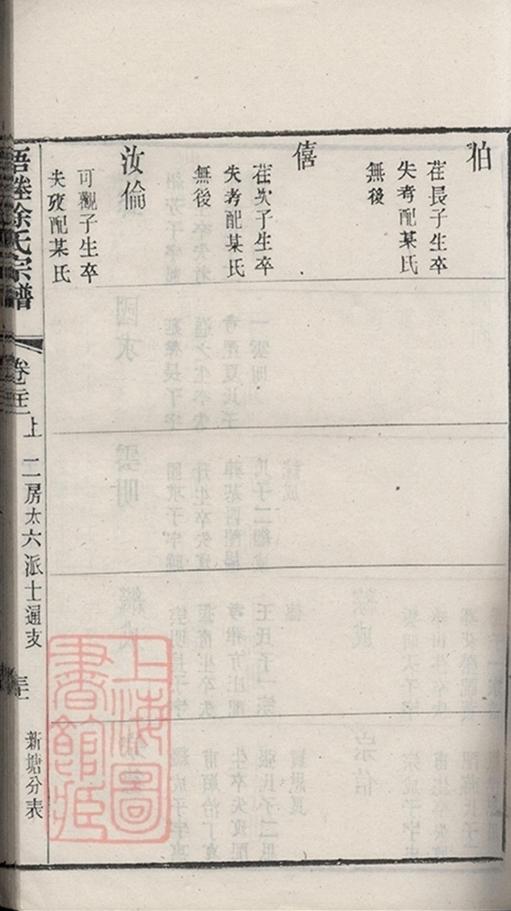 狛
茌長子生卒
失考配某氏
無後
僖
茌次子生卒
失考配某氏
無後
汝倫
可觀子生卒
失攷配某氏
徐氏宗譜
上
二房太六派士暹支
新塘分表
上海圖書館藏